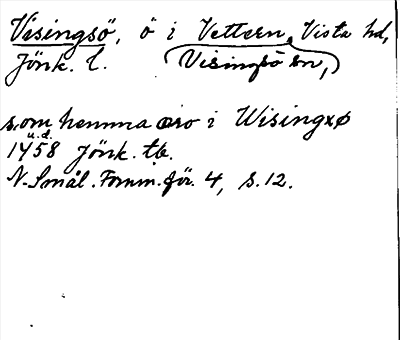 Visingsö, ö i Vettern, Vista hd,
Jönk. l. (Visingsö sn,)
som hemma æro i Wisingxø
u.d.
1458 Jönk. tb.
N. Smål. Fornm.för. 4, s. 12.